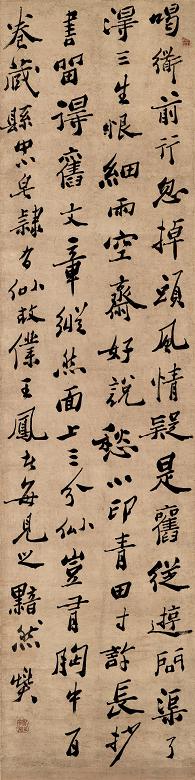 喝衜前行忽掉頭風情疑是舊從遊問渠了
得三生恨細雨空齋好說愁小印青田寸許長抄
書留得舊文章縱然面上三分似豈有胸中百
卷藏縣中小皂隸有似故僕王鳳者每見之黯然燮